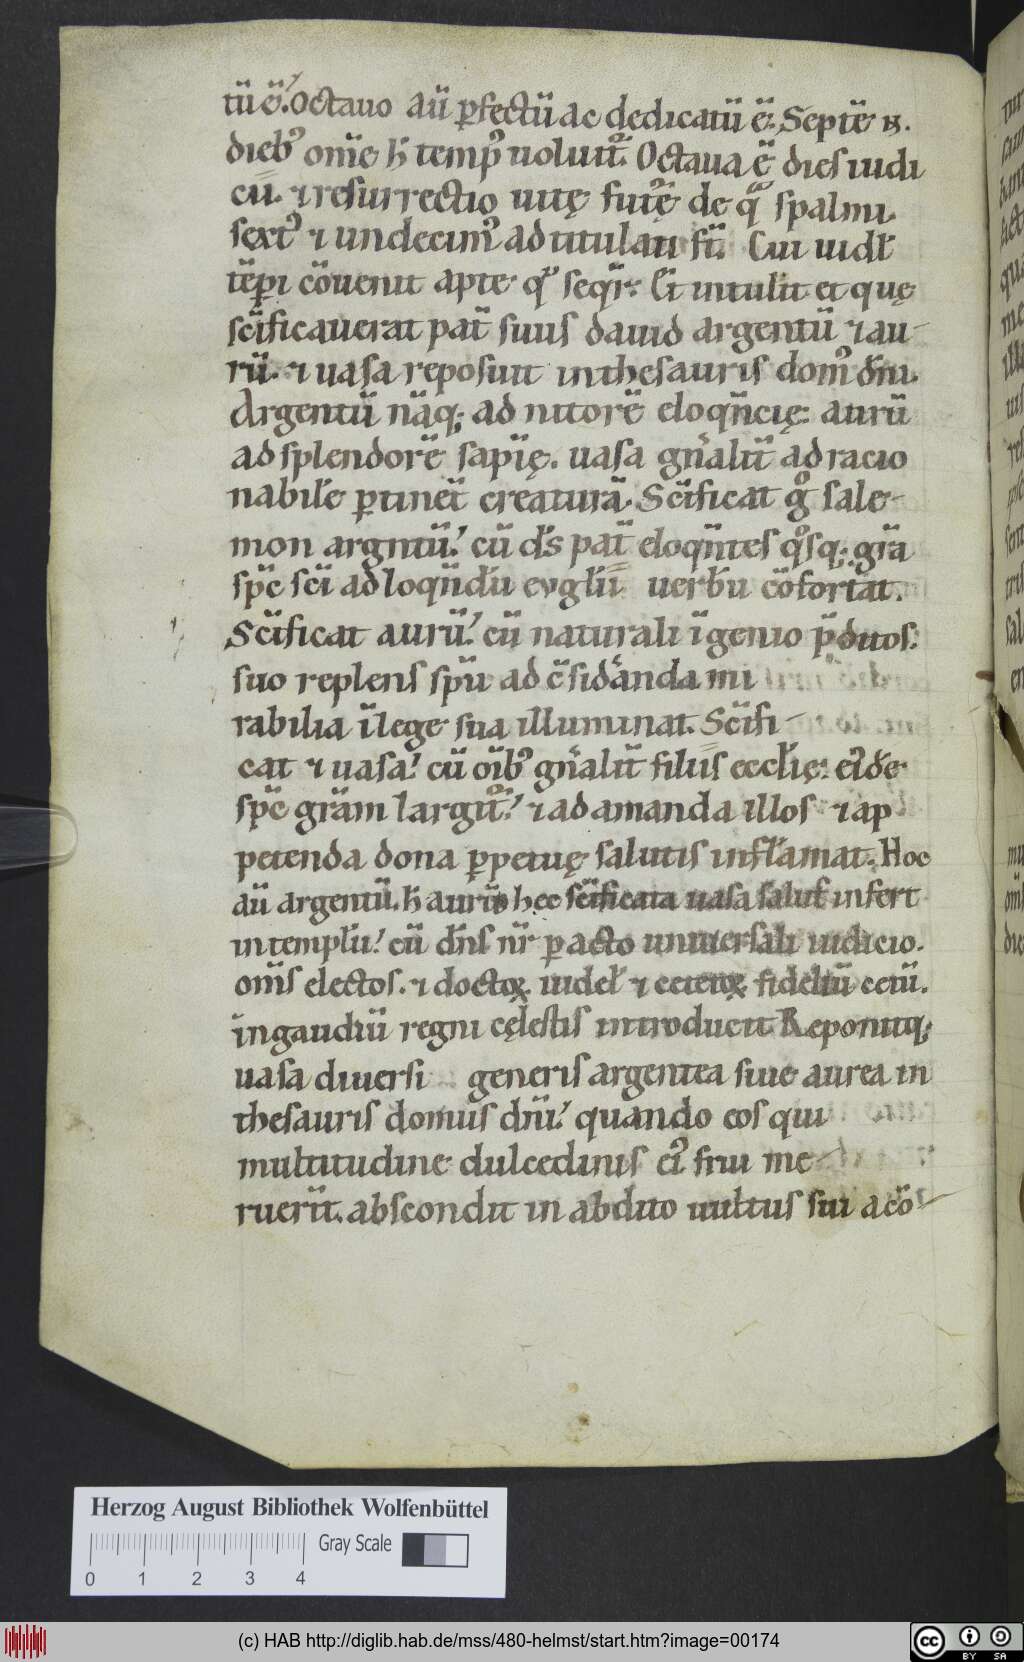 tū ē. Octauo aū ꝑfectū ac dedicatū ē. Septē n̄.
dieb' om̄e h̄ temp' uoluit̄. Octaua ē dies iudi
cii. ⁊ resurrectio uitę fut'ę de q° spalmi
sext' ⁊ undecim' ad titulati st̄. Cui uidl'
tēpi cōuenit apte qd' seqr̄. Et intulit et quę
sc̄ificauerat pat̄ suus dauid argentū ⁊ au-
rū. ⁊ uasa reposuit in thesauris dom' dn̄i.
Argentū nāq; ad nitorē eloqn̄cię. aurū
ad splendorē sapīę. uasa gn̄aliū ad racio
nabilē ꝑtinet̄ creaturā. Sc̄ificat g° sale-
mon argntū. cū ds̄ pat̄ eloqn̄tes q°sq; gr̄a
sp̄c sc̄i ad loqn̄dū euglīī uerbū cōfortat.
Sc̄ificat aurū. cū naturali īgenio p̄ditos.
suo replens sp̄u ad c̄siderāda mi
rabilia ī lege sua illuminat. Sc̄ifi-
cat ⁊ uasa. cū oīb' gn̄aliū filiis eccl̄ię. ei'dē
sp̄c grām largit̄. ⁊ ad amanda illos ⁊ ap
petenda dona ꝑpetuę salutis inflāmat. Hoc
aū argentū. h̄ aurū hec sc̄ificata uasa saluť infert
in templū. cū dn̄s nr̄ ꝑacto uniuersali iudicio.
om̄s electos. ⁊ doctoꝝ. uidel' ⁊ ceteroꝝ fideliū cetū.
in gaudiū regni cęlestis introducit. Reponitq;
uasa diuersi generis argentea siue aurea in
thesauris domus dn̄i. quando eos qui
multitudine dulcedinis ei' frui me-
ruerīt. abscondit in abdito uultus sui a cō-
Herzog August Bibliothek Wolfenbüttel
Gray Scale
0 1 2 3 4
(c) HAB http://diglib.hab.de/mss/480-helmst/start.htm?image=00174
cc BY SA